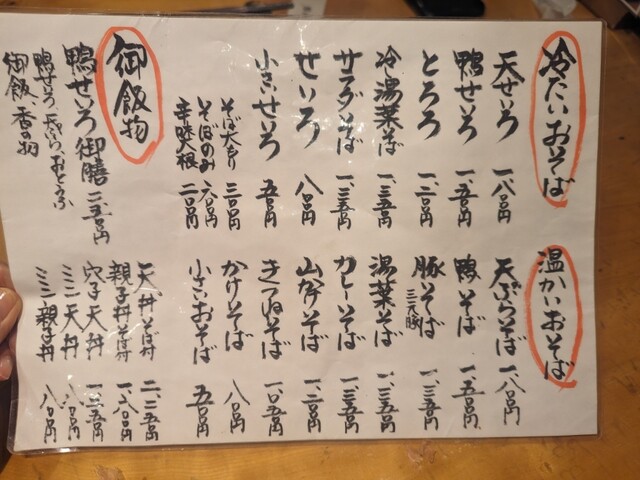 冷たいおそば
天せいろ 一、八〇〇円
鴨せいろ 一、五〇〇円
とろろ 一、二〇〇円
冷し湯葉そば 一、三五〇円
サラダそば 一、三五〇円
せいろ 八〇〇円
小さいせいろ 五〇〇円
そば大もり 三〇〇円
そばのみ 六〇〇円
辛味大根 二〇〇円
温かいおそば
天ぷらそば 一、八〇〇円
鴨そば 一、五〇〇円
豚そば 三元豚 一、三五〇円
湯葉そば 一、三五〇円
カレーそば 一、三五〇円
山かけそば 一、二〇〇円
きつねそば 一、〇五〇円
かけそば 八〇〇円
小さいおそば 五〇〇円
御飯物
鴨せいろ御膳 二、五〇〇円
鴨せいろ、天ぷら、おとうふ
御飯、香の物
天丼 そば付 二、三五〇円
親子丼 そば付 一、八〇〇円
穴子天丼 一、三五〇円
ミニ天丼 八〇〇円
ミニ親子丼 八〇〇円